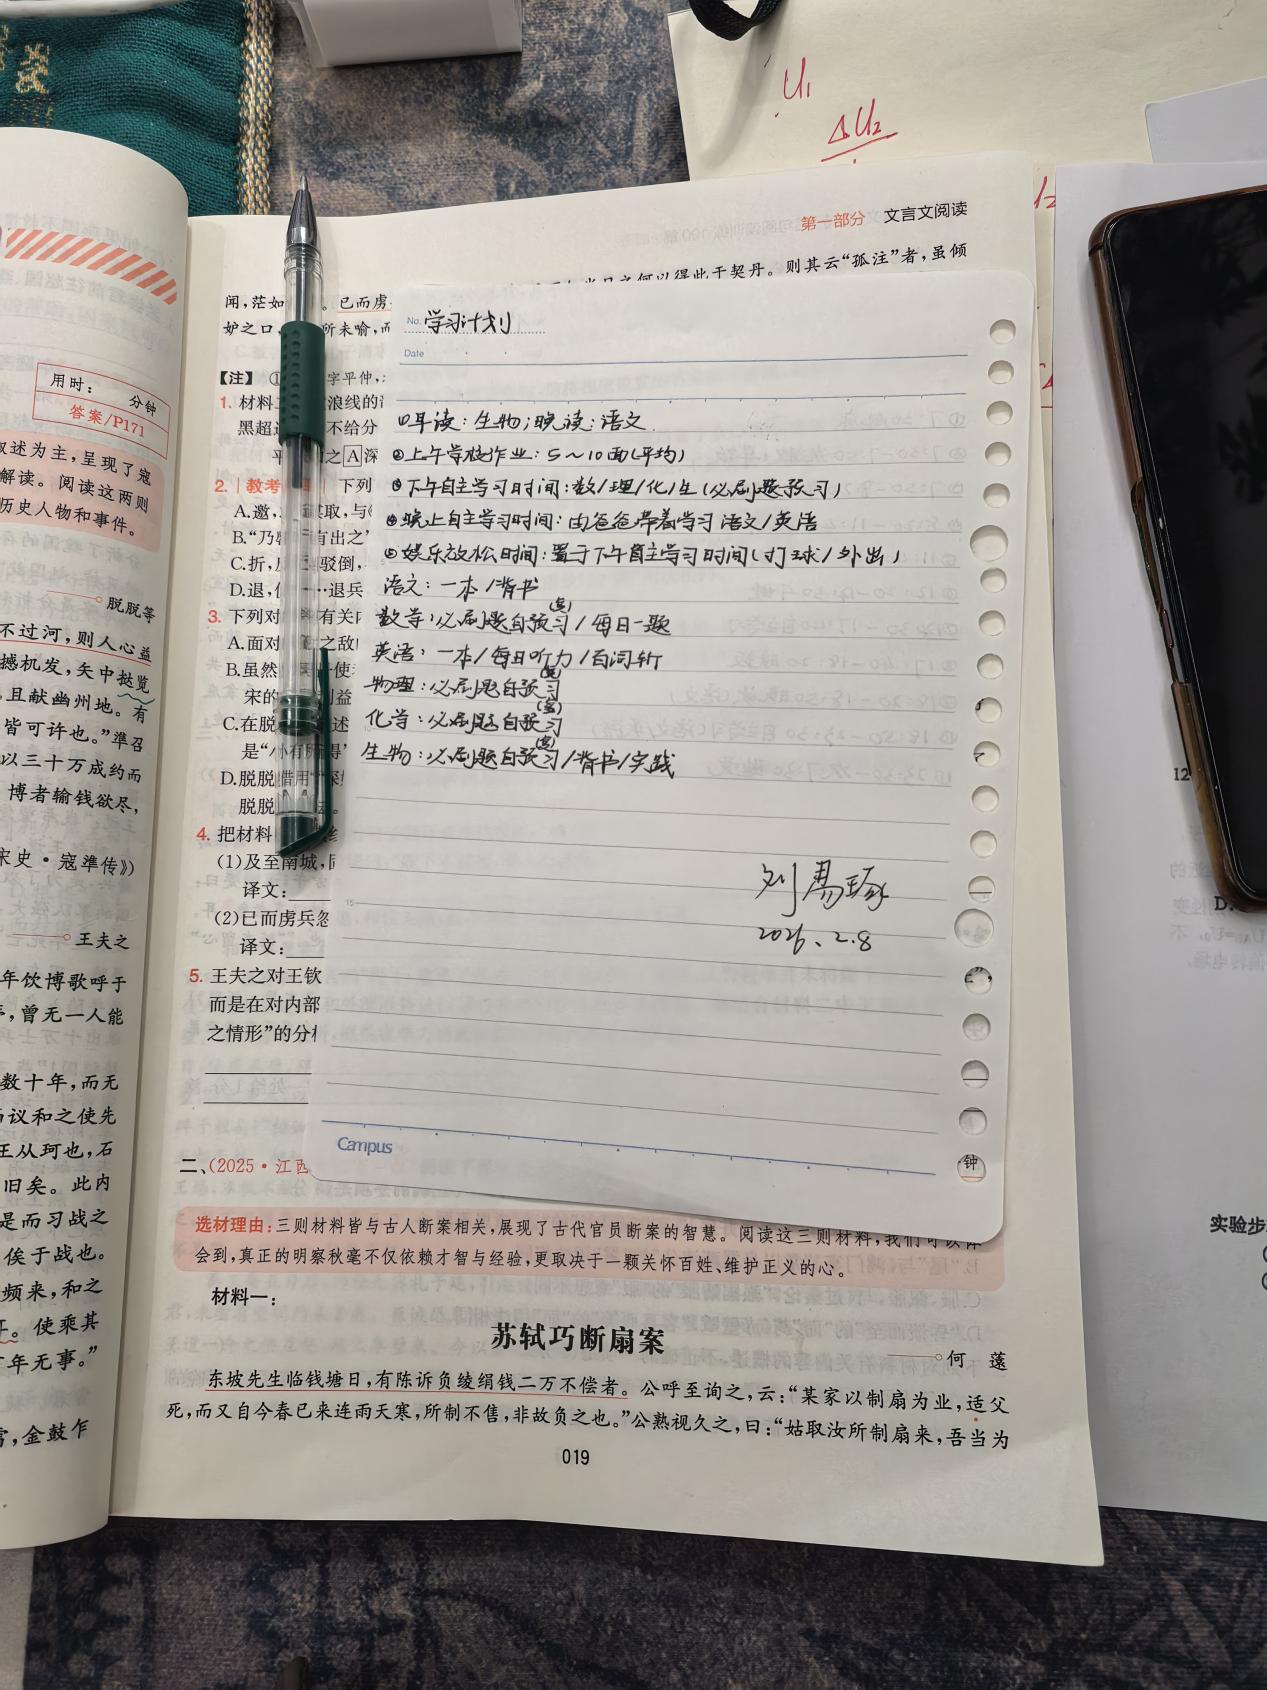 U₁
ΔU₂
第一部分 文言文阅读
则其云“孤注”者,虽倾
闻,茫如
已而虏
妒之口,
所未喻,而
【注】
字平仲,
1. 材料
浪线的
黑超
不给分
平
之A深
2.
教考
下列
A.邀,
B.“乃
有出之
C.折,
驳倒,
D.退,
退兵
3. 下列对
有关
A.面对
之敌
B.虽然
使
宋的
利益
C.在脱
述
是“小有所得”
D.脱脱
借用“
脱脱
4. 把材料
(1)及至南城,
译文:
(2)已而虏兵忽
译文:
5. 王夫之对王钦
而是在对内部
之情形”的分析
No. 学习计划
Date
①早读:生物;晚读:语文
②上午学校作业:5~10面(平均)
③下午自主学习时间:数/理/化/生(必刷题预习)
④晚上自主学习时间:由爸爸带着学习语文/英语
⑤娱乐放松时间:置于下午自主学习时间(打球/外出)
语文:一本/背书
数学:必刷题自预习/每日一题
英语:一本/每日听力/百词斩
物理:必刷题自预习
化学:必刷题自预习
生物:必刷题自预习/背书/实践
2026、2.8
15
Campus
钟
二、(2025·江西
选材理由:三则材料皆与古人断案相关,展现了古代官员断案的智慧。阅读这三则材料,我们可以体
会到,真正的明察秋毫不仅依赖才智与经验,更取决于一颗关怀百姓、维护正义的心。
材料一:
苏轼巧断扇案
何薳
东坡先生临钱塘日,有陈诉负绫绢钱二万不偿者。公呼至询之,云:“某家以制扇为业,适父
死,而又自今春已来连雨天寒,所制不售,非故负之也。”公熟视久之,曰:“姑取汝所制扇来,吾当为
019
用时: 分钟
答案/P171
叙述为主,呈现了寇
解读。阅读这两则
历史人物和事件。
脱脱等
不过河,则人心益
撼机发,矢中挞览
且献幽州地。有
皆可许也。”準召
以三十万成约而
博者输钱欲尽,
宋史·寇準传》)
王夫之
年饮博歌呼于
曾无一人能
数十年,而无
议和之使先
王从珂也,石
旧矣。此内
是而习战之
俟于战也。
频来,和之
使乘其
年无事。”
金鼓乍
12
D.
实验步